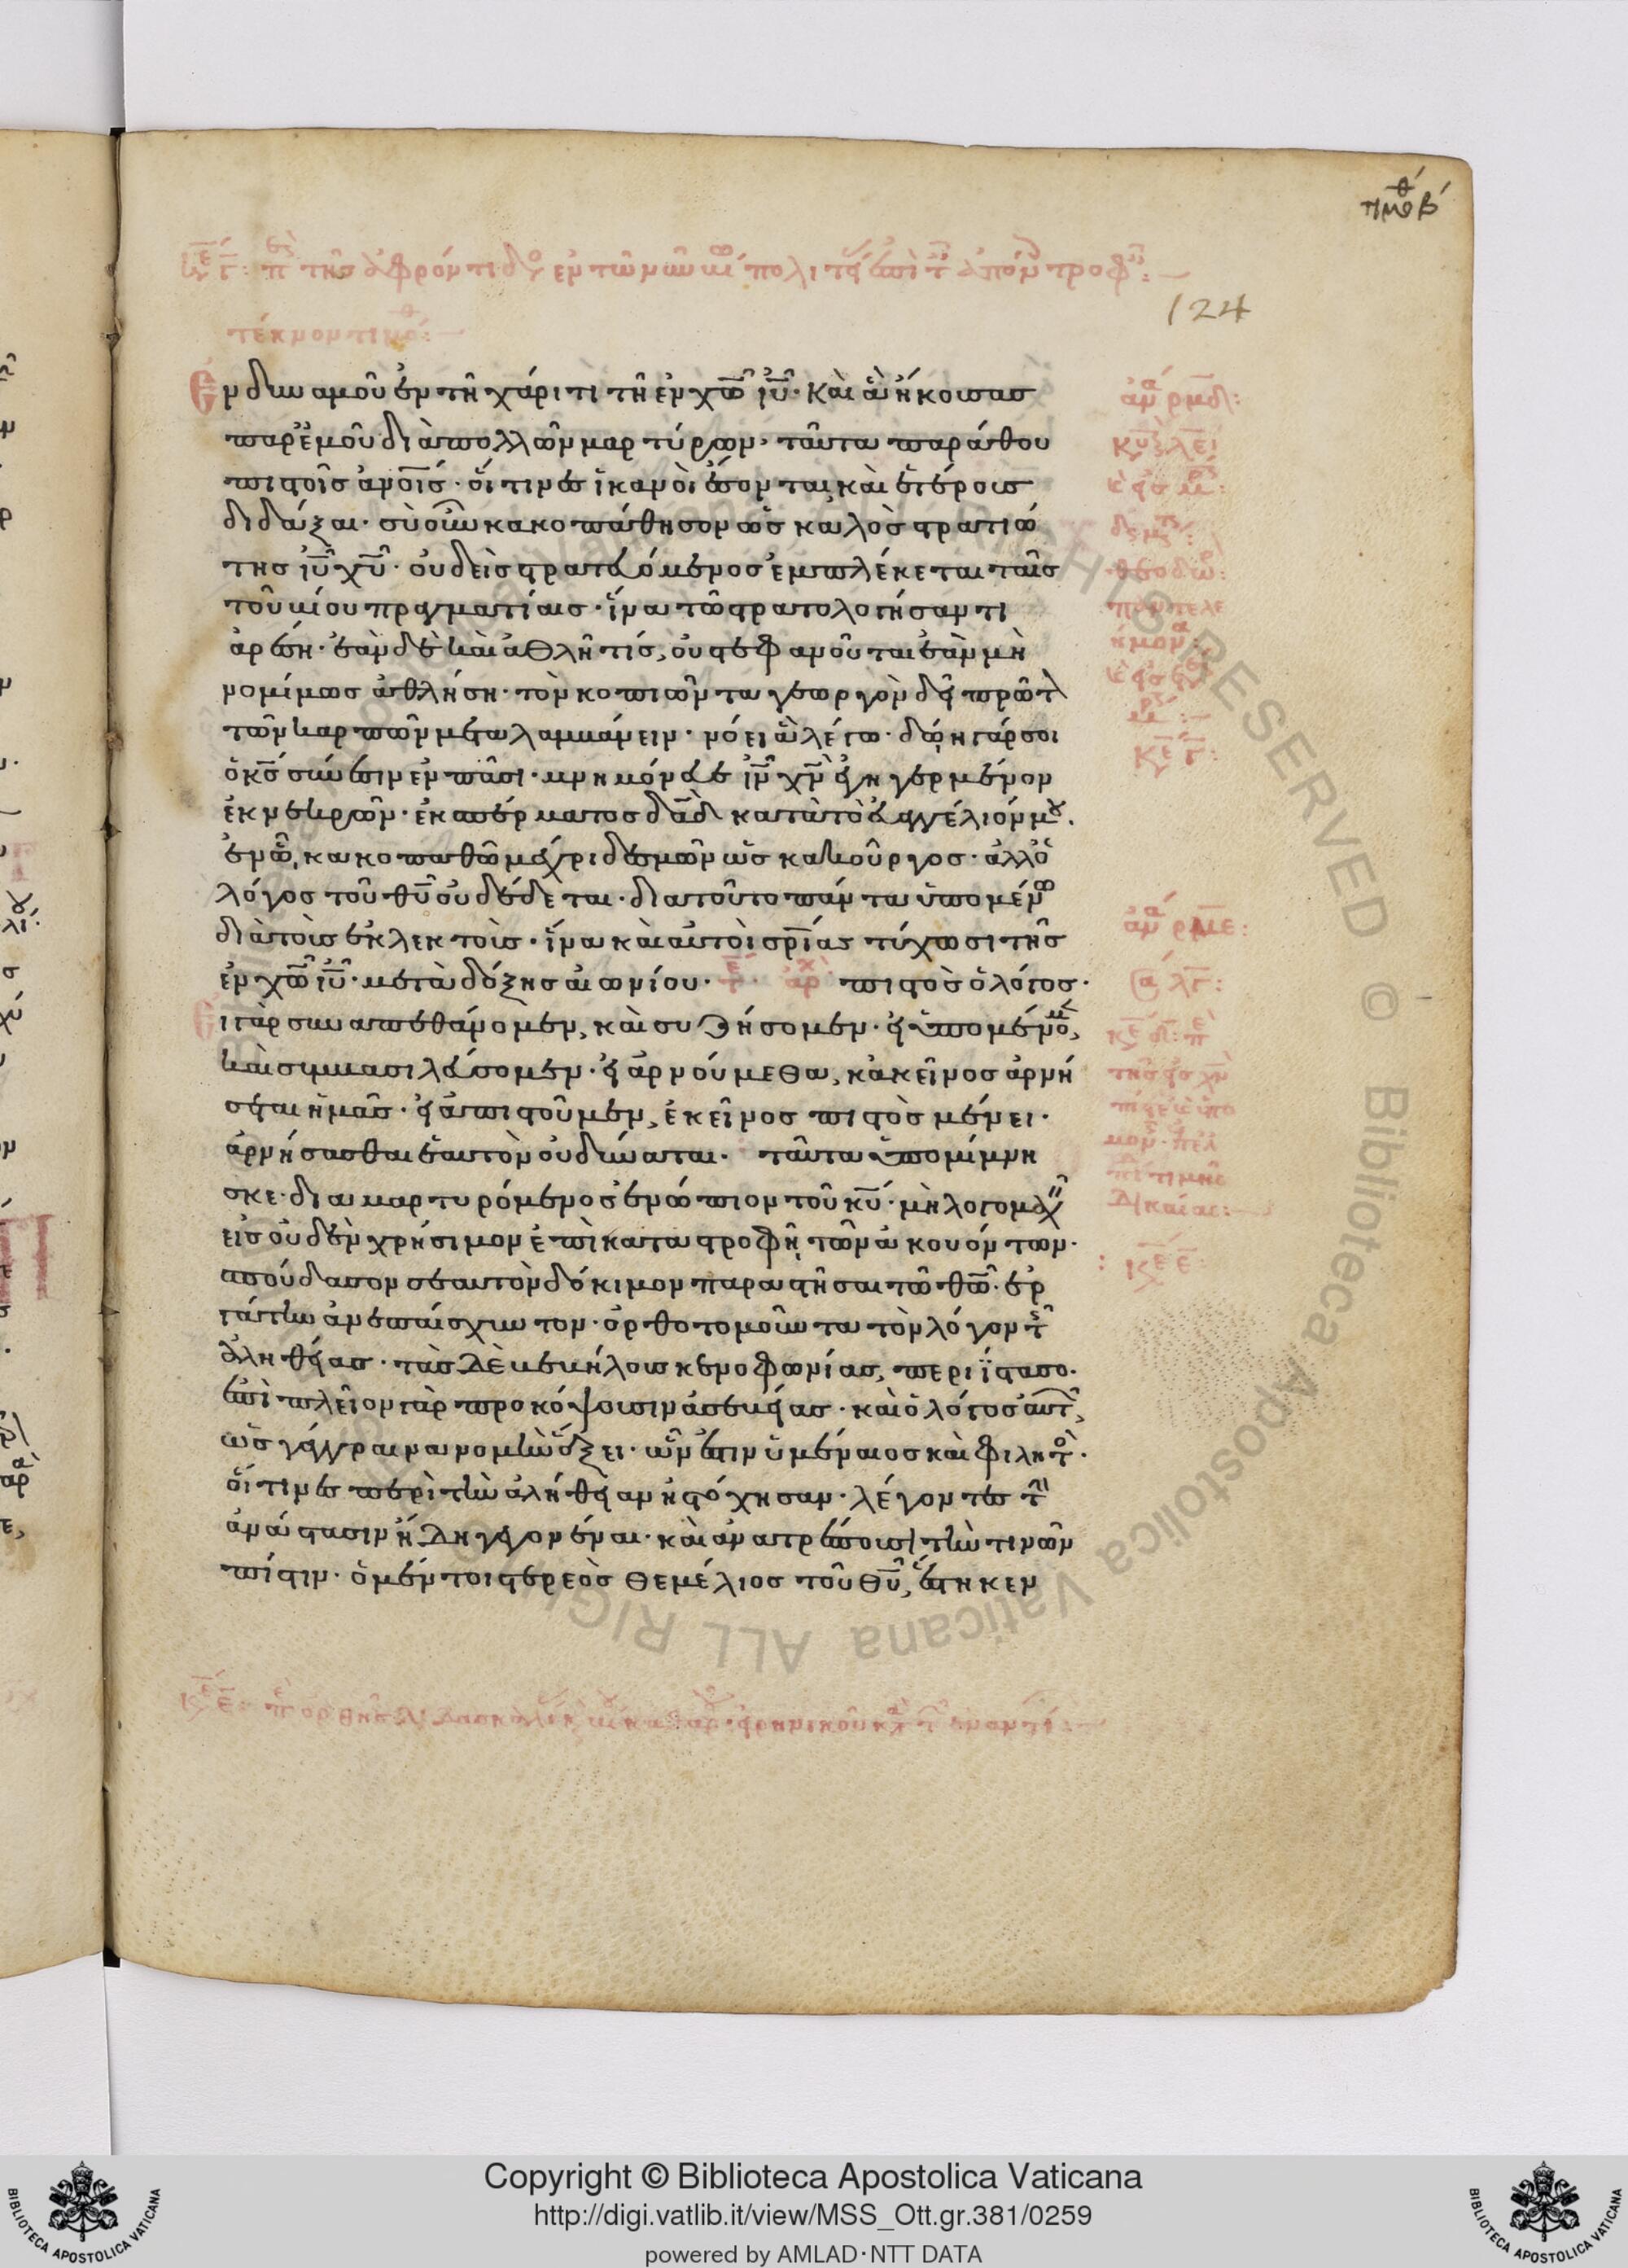 τιμοθ β
124
τέκνον τιμοθ:
Ενδυναμοῦ ἐν τῆ χάριτι τῆ ἐν χω ιυ· Καὶ ἃ ἤκουσας
παρ' ἐμοῦ διὰ πολλῶν μαρτύρων· ταῦτα παράθου
πιστοῖς ανοις· οἵτινες ἱκανοὶ ἔσονται καὶ ἑτέρους
διδάξαι· σὺ οὖν κακοπάθησον ὡς καλὸς στρατιώ
της ιυ χυ· οὐδεὶς στρατευόμενος ἐμπλέκεται ταῖς
τοῦ βίου πραγματίαις· ἵνα τῶ στρατολογήσαντι
ἀρέση· ἐὰν δὲ καὶ ἀθλῆ τίς, οὐ στεφανοῦται ἐὰν μὴ
νομίμως ἀθλήση· τὸν κοπιῶντα γεωργὸν δεῖ πρῶτ
τῶν καρπῶν μεταλαμβάνειν· νόει ἃ λέγω· δώη γάρ σοι
ὁ κς σύνεσιν ἐν πᾶσι· μνημόνευε ιν χν ἐγηγερμένον
ἐκ νεκρῶν· ἐκ σπέρματος δαδ κατὰ τὸ εὐαγγέλιόν μου.
ἐν ὧ, κακοπαθῶ μέχρι δεσμῶν ὡς κακοῦργος· ἀλλ' ὁ
λόγος τοῦ θυ οὐ δέδεται· διατοῦτο πάντα ὑπομένω
διὰ τοὺς ἐκλεκτοὺς· ἵνα καὶ αὐτοὶ σριας τύχωσι τῆς
ἐν χω ιυ· μετὰ δόξης αἰωνίου· τε αρχ πιστὸς ὁ λόγος·
Ει γὰρ συναπεθάνομεν, καὶ συζήσομεν· εἰ ὑπομένομεν,
καὶ συμβασιλεύσομεν· εἰ ἀρνούμεθα, κἀκεῖνος ἀρνή
σεται ἡμᾶς· εἰ ἀπιστοῦμεν, ἐκεῖνος πιστὸς μένει·
ἀρνήσασθαι ἑαυτὸν οὐ δύναται· ταῦτα ὑπομίμνη
σκε· διαμαρτυρόμενος ἐνώπιον τοῦ κυ· μὴ λογομαχ
εις οὐδὲν χρήσιμον ἐπὶ καταστροφῆ, τῶν ἀκουόντων·
σπούδασον σεαυτὸν δόκιμον παραστῆσαι τῶ θω· ἐρ
γάτην ἀνεπαίσχυντον· ὀρθοτομοῦντα τὸν λόγον τῆς
ἀληθείας· τὰς δὲ βεβήλους κενοφωνίας, περιΐστασο·
ἐπὶ πλεῖον γὰρ προκόψουσιν ἀσεβείας· καὶ ὁ λόγος αὐτῶν,
ὡς γάγγραινα νομὴν ἕξει· ὧν ἐστιν ὑμέναιος καὶ φιλητὸς·
οἵτινες περὶ τὴν ἀλήθειαν ἠστόχησαν· λέγοντες τὴν
ἀνάστασιν ἤδη γεγονέναι· καὶ ἀνατρέπουσι τὴν τινῶν
πίστιν· ὁ μέντοι στερεὸς θεμέλιος τοῦ θυ, ἕστηκεν
Copyright © Biblioteca Apostolica Vaticana
http://digi.vatlib.it/view/MSS_Ott.gr.381/0259
powered by AMLAD·NTT DATA